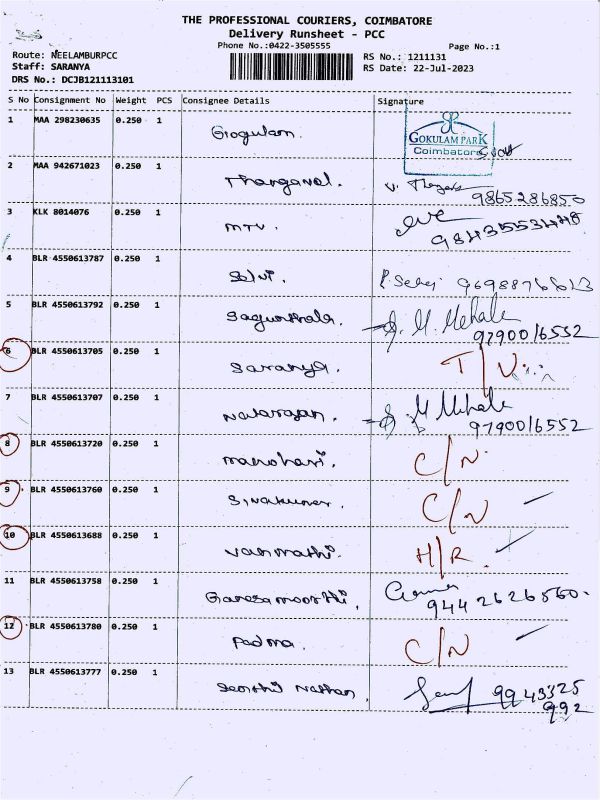 THE PROFESSIONAL COURIERS, COIMBATORE
Delivery Runsheet - PCC
Phone No.:0422-3505555
Page No.:1
Route: NEELAMBURPCC
RS No.: 1211131
Staff: SARANYA
RS Date: 22-Jul-2023
DRS No.: DCJB121113101
S No Consignment No Weight PCS Consignee Details Signature
1 MAA 298230635 0.250 1 Giogulam.
GOKULAM PARK
Coimbatore
2 MAA 942671023 0.250 1 Thangavel.
9865286850
3 KLK 8014076 0.250 1 MTV.
98435553448
4 BLR 4550613787 0.250 1 Selvi.
9698876613
5 BLR 4550613792 0.250 1 Sagunthala. M. Mehala
9790016552
6 BLR 4550613705 0.250 1 Saranya. T/V
7 BLR 4550613707 0.250 1 Natarajan. M Mehala
9790016552
8 BLR 4550613720 0.250 1 Manohari. C/N
9 BLR 4550613760 0.250 1 Sivakumar. C/N
10 BLR 4550613688 0.250 1 Vanmathi. H/R.
11 BLR 4550613758 0.250 1 Ganesamoorthi.
9442626560.
12 BLR 4550613780 0.250 1 Padma. C/N
13 BLR 4550613777 0.250 1 Senthil Nathan. 9943325
992